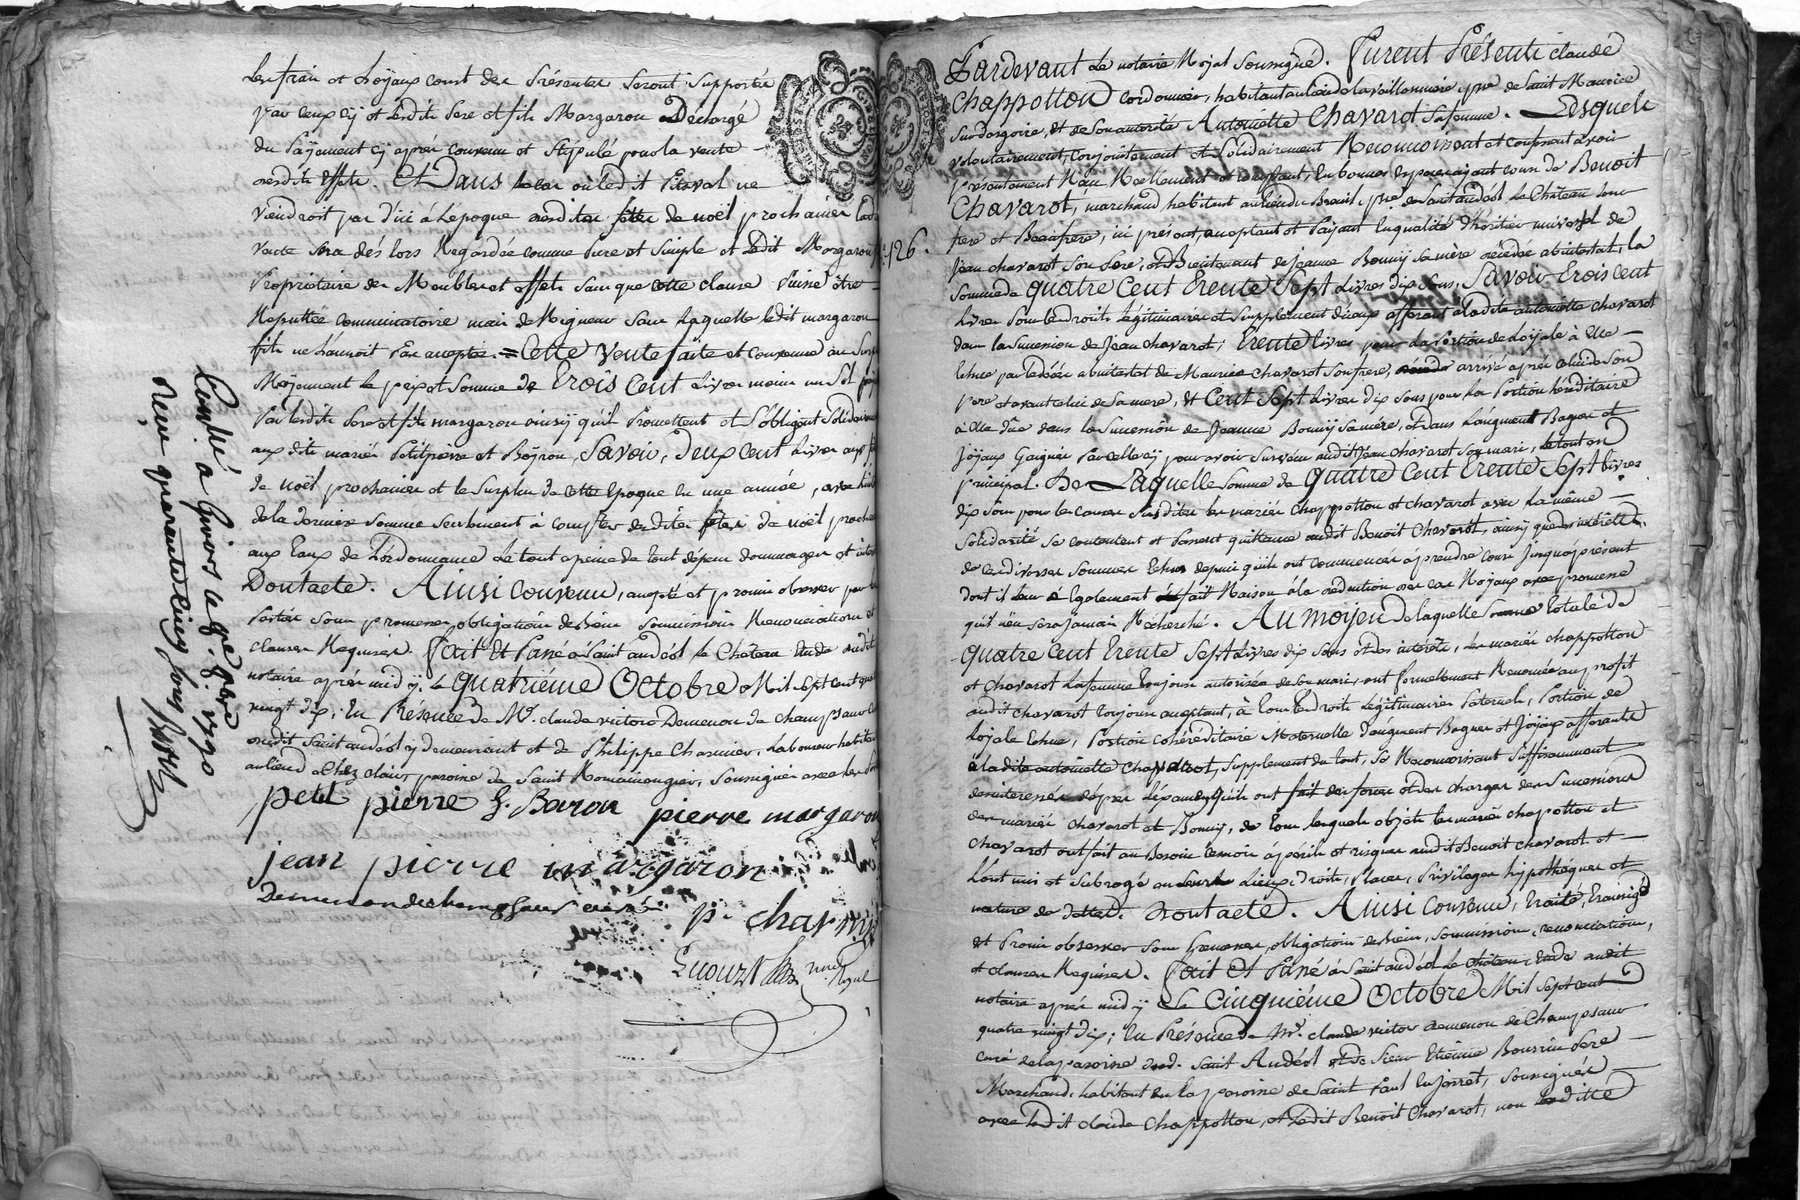 Les frais et Loyaux cout des Présentes Seront Supportés
par ceux cy et lesdits Pere et fils Margaron Déchargé
du Payement cy après convenu et Stipulé pour la vente
desdits effets. Et Dans le cas où ledit Peteval ne
Viendroit par d'ici à L'époque desdites fêtes de noël prochaines
vente sera dés lors Regardée comme Pure et Simple et Ledit Margaron
Propriétaire des Meubles et effets sans que cette clause Puisse être
Reputtée comminatoire mais de Rigueur Sans Laquelle ledit margaron
fils ne L'auroit Pas acceptée. = Cette Vente faite et convenue au Surplus
Moyennant le prix et Somme de Trois Cent Livres moins un Sol
Par lesdits Pere et fils margaron ainsy qu'il Promettent et S'obligent Solidairement
aux dits mariés Petitpierre et Bayron, Savoir, Deux cent Livres aux
de noël prochaines et le Surplus de cette Epoque en une année, avec
de la derniere Somme Seulement à compter desdites fêtes de noël prochaines
aux taux de L'ordonnance Le tout a peine de tout dépens dommages et
Dont acte. Ainsi Convenu, accepté et promis observer par
Parties Sous promesses obligation de biens Soumissions Renonciations et
clauses Requises. Fait Et Passé à Saint andéol le Chateau Etude dudit
notaire après midy. Le Quatrième Octobre Mil Sept Cent quatre
vingt dix; En Présence de Mr. claude victor Demenou de champsaur
dudit Saint andéol y demeurant et de Philippe Charmier, Laboureur habitant
au lieu de chez clair, paroisse de Saint Romain en gier, Soussignés avec
petit pierre G. Baron pierre margaron
jean pierre margaron
Demenou de champsaur curé
p. charmier
Royal
Controllé à Givors le 9e 8bre 1790
Reçu quarante cinq sous
126.
Pardevant Le notaire Royal Soussigné. Furent Présents claude
Chappotton cordonnier, habitant au lieu de la vaillonniere, psse de Saint Maurice
Sur dargoire, et de Son autorité Antoinette Chavarot Sa femme. Lesquels
volontairement, conjointement et Solidairement Reconnoissent et confessent avoir
présentement Reçu Réellement et comptant, En bonnes Especes ayant cours de Benoit
Chavarot, marchand habitant au lieu du Breuil, psse de Saint andéol Le Chateau leur
frere et Beaufrere, ici présent, acceptant et Paÿant En qualité d'héritier universel de
Jean chavarot Son Pere, et Bientenant de Jeanne Bonnij Sa mère décédée abintestat, La
Somme de Quatre Cent Trente Sept Livres dix Sous, Savoir Trois Cent
Livres Pour les droits Légitimaires et Supplement d'iceux afferant à ladite antoinette chavarot
dans la Succession de Jean chavarot; Trente Livres pour La Portion de Loijale à elle
Echue par le décès abintestat de Maurice Chavarot Son frère, arrivé après celui de Son
pere et avant celui de Sa mere, Et Cent Sept Livres dix Sous pour La Portion héréditaire
à elle Dûe dans la Succession de Jeanne Bonnij Sa mère, et dans L'augment Bagues et
Joyaux Gagnés Par celle cy pour avoir Survécu audit Jean chavarot Son mari, le tout en
principal. De Laquelle Somme de Quatre Cent Trente Sept Livres
dix Sous pour les causes Susdites les mariés Chappotton et chavarot avec La même
Solidarité Se contentent et Passent quittance audit Benoit Chavarot, ainsy que des intérêts
de ces diverses Sommes Echus depuis qu'ils ont commencé à prendre cours Jusqu'à présent
dont il leur a Egalement fait Raison à la déduction des cas Royaux avec promesse
qu'il n'en Sera Jamais Recherché. Au moyen de laquelle Somme totale de
Quatre Cent Trente Sept Livres dix Sous et des intérêts, les mariés chappotton
et chavarot La femme Toujours autorisée de Son mari, ont formellement Renoncé au profit
audit chavarot toujours acceptant, à Tous Les droits Légitimaires Paternels, Portion de
Loÿale Echue, Portion cohéréditaire Maternelle d'augment Bagues et Joyaux afferants
à ladite antoinette Chavarot, Supplement du tout, Se Reconnoissant Suffisamment
des interessés qu'ils ont fait des forces et des charges des Successions
des mariés chavarot et Bonnij, de Tous lesquels objets les mariés chapotton et
chavarot ont fait au Besoin cession à périls et risques audit Benoit Chavarot et
L'ont mis et Subrogé en leurs Lieux, Droits, Places, Privileges hypothéques et
nature de dettes. Dont acte. Ainsi Convenu, traité, transigé
et Promis observer Sous Promesses, obligation de biens, Soumissions, renonciations,
et clauses Requises. Fait Et Passé à Saint andéol Le Chateau, Etude dudit
notaire après midy Le Cinquième Octobre Mil Sept cent
quatre vingt dix; En Présence de Mr. claude victor demenou de Champsaur
curé de la paroisse dud. Saint Andéol et de Sieur Etienne Bourrin Pere
Marchand, habitant En la paroisse de Saint Paul En Jarret, Soussignés
avec ledit claude Chappotton, et Ledit Benoit Chavarot, non Ladite